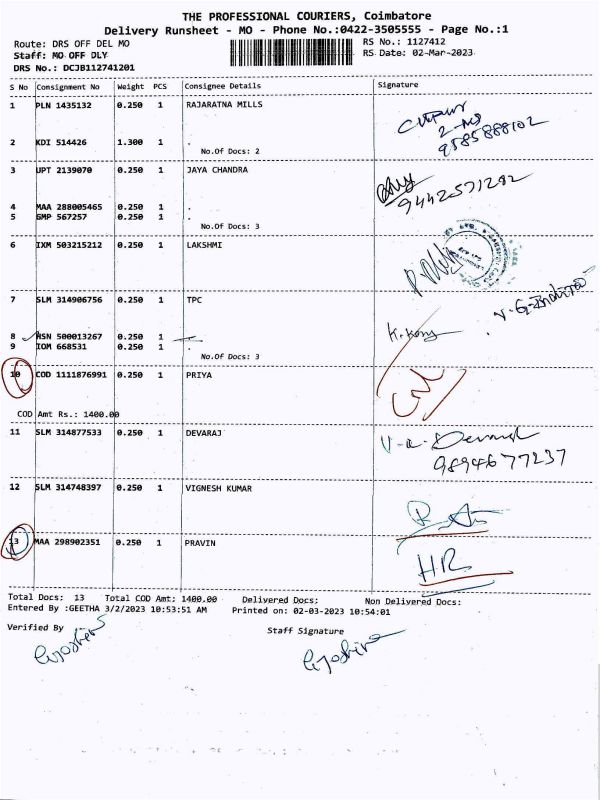 THE PROFESSIONAL COURIERS, Coimbatore
Delivery Runsheet - MO - Phone No.:0422-3505555 - Page No.:1
Route: DRS OFF DEL MO RS No.: 1127412
Staff: MO OFF DLY RS Date: 02-Mar-2023
DRS No.: DCJB112741201
S No Consignment No Weight PCS Consignee Details Signature
1 PLN 1435132 0.250 1 RAJARATNA MILLS
2 KDI 514426 1.300 1 .
9585888102
No.Of Docs: 2
3 UPT 2139070 0.250 1 JAYA CHANDRA
9442571282
4 MAA 288005465 0.250 1 .
5 GMP 567257 0.250 1 .
No.Of Docs: 3
6 IXM 503215212 0.250 1 LAKSHMI
7 SLM 314906756 0.250 1 TPC
8 HSN 500013267 0.250 1 .
9 IOM 668531 0.250 1 .
No.Of Docs: 3
10 COD 1111876991 0.250 1 PRIYA
COD Amt Rs.: 1400.00
11 SLM 314877533 0.250 1 DEVARAJ
9894677237
12 SLM 314748397 0.250 1 VIGNESH KUMAR
13 MAA 298902351 0.250 1 PRAVIN
HR
Total Docs: 13 Total COD Amt: 1400.00 Delivered Docs: Non Delivered Docs:
Entered By :GEETHA 3/2/2023 10:53:51 AM Printed on: 02-03-2023 10:54:01
Verified By Staff Signature